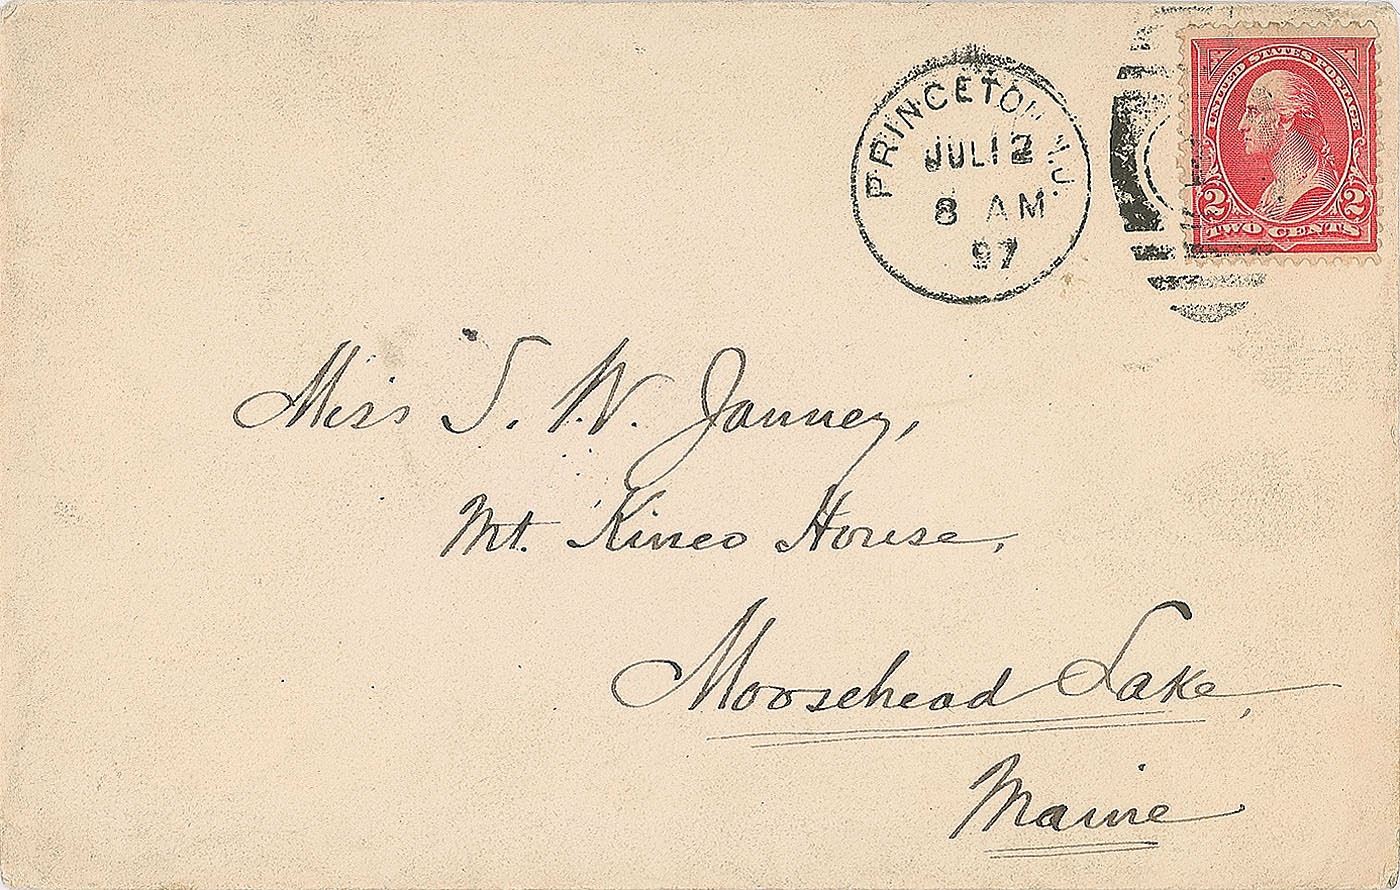 PRINCETON N.J.
JUL 12
8 AM
97
UNITED STATES POSTAGE
2 2
TWO CENTS
Miss S. W. Janney,
Mt. Kineo House,
Moosehead Lake,
Maine